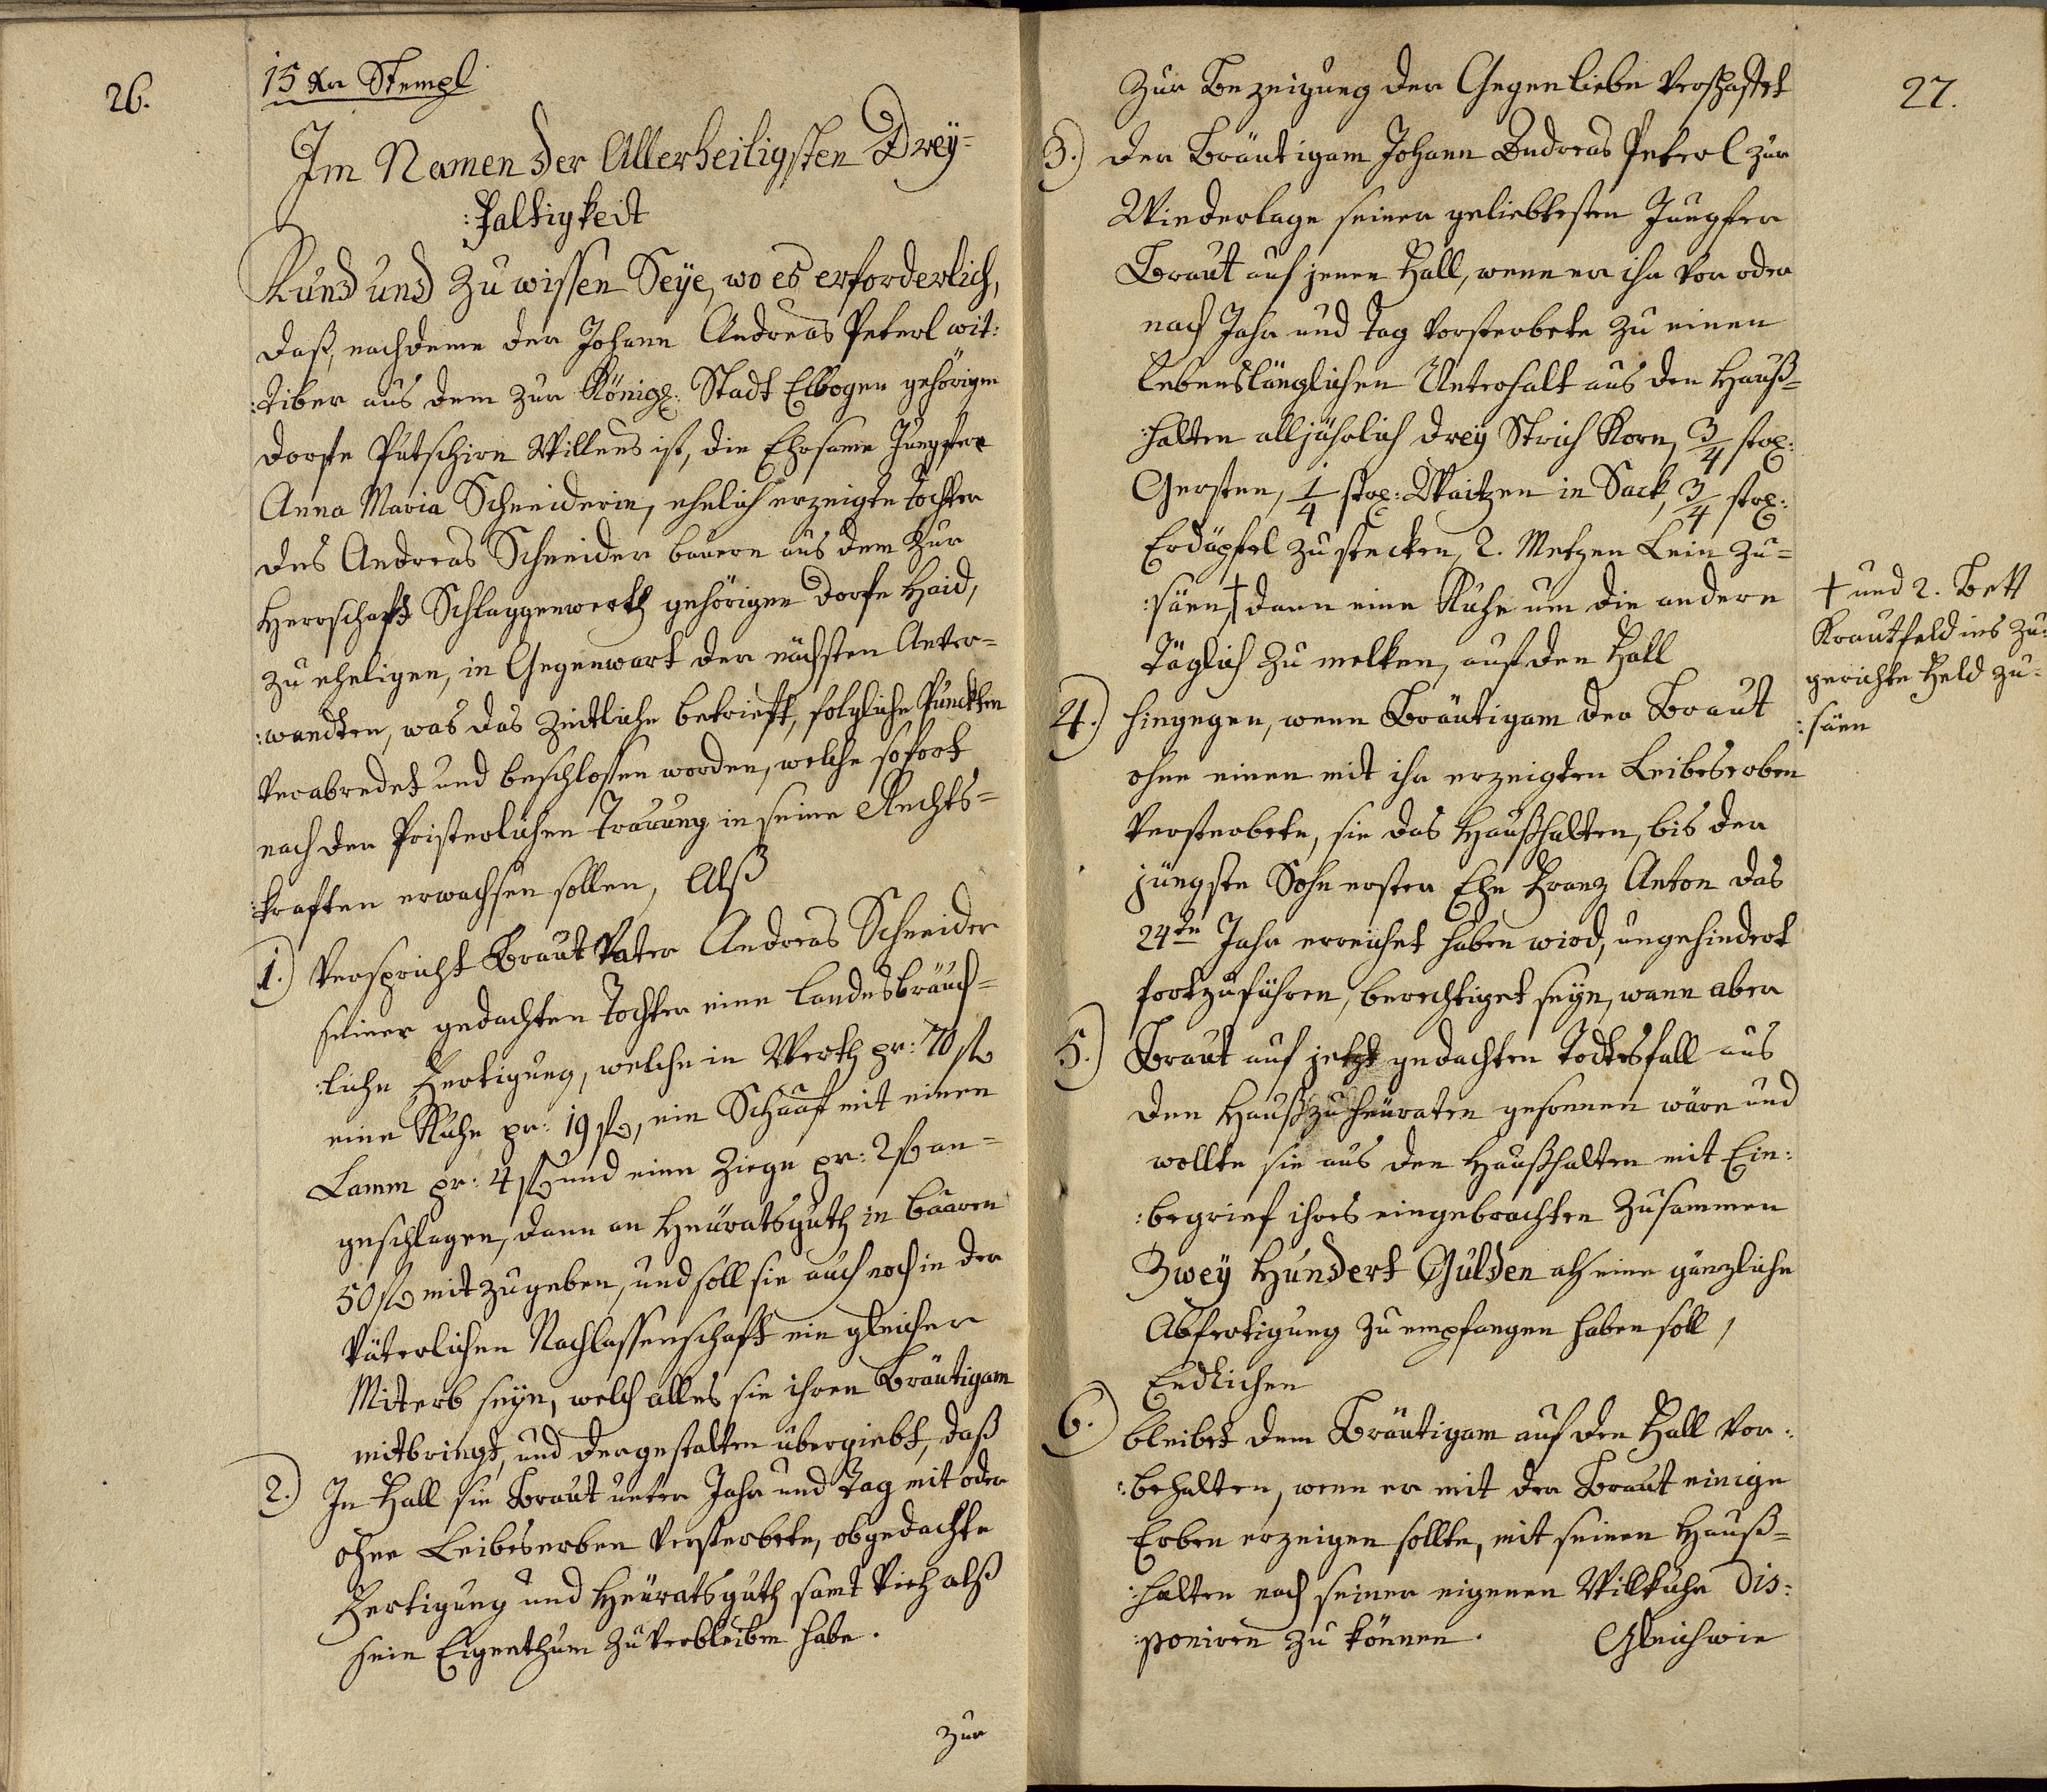 26.
15 Xr Stempl
Im Namen der Allerheiligsten Drey=
:faltigkeit
Kund und Zu wissen Seye, wo es erforderlich,
daß, nachdeme der Johann Andreas Peterl wit:
:tiber aus dem zur Königl: Stadt Elbogen gehörigen
Dorffe Putschirn Willens ist, die Ehrsame Jungfer
Anna Maria Schneiderin, ehelich erzeigte Tochter
des Andreas Schneider bauern aus dem zur
Herrschaft Schlaggenwerth gehörigen Dorfe Haid,
zu eheligen, in Gegenwart der nächsten Anver=
:wandten, was das Zeitliche betrieft, folgliche Puncten
verabredet und beschlossen worden, welche sofort
nach der Pristerlichen Trauung in seine Rechts=
:kraften erwachsen sollen, Alß
1.) Verspricht Braut Vater Andreas Schneider
seiner gedachten Tochter eine landesbräuch=
:liche Fertigung, welche in Werth pr: 70 f
eine Kuhe pr: 19 f, ein Schaaf mit einen
Lamm pr: 4 f und eine Ziege pr: 2 f an=
geschlagen, dann an Heüratsguth in baaren
50 f mitzugeben, und soll sie auch noch in der
Väterlichen Nachlassenschaft ein gleicher
Miterb seyn, welch alles sie ihren Bräutigam
mitbringt, und dergestalten übergiebt, daß
2.) In Fall sie Braut unter Jahr und Tag mit oder
ohne Leibeserben versterbete, obgedachte
Fertigung und Heüratsguth samt Vieh alß
sein Eigenthum zu verbleiben habe.
zur
27.
Zur Bezeigung der Gegenliebe verschaffet
3.) der Bräutigam Johann Andreas Peterl zur
Wiederlage seiner geliebtesten Jungfer
Braut auf jenen Fall, wenn er ihr vor oder
nach Jahr und Tag vorsterbete zu einen
Lebenslänglichen Unterhalt aus den Hauß=
:halten alljährlich drey Strich Korn, 3/4 strl:
Gersten, 1/4 strl: Waitzen in Sack, 3/4 strl:
Erdäpfel zu stecken, 2. Metzen Lein zu=
:säen, † dann eine Kuhe um die andere
Täglich zu melken, auf den Fall
† und 2. Bett
Krautfeld ins zu:
gerichte Feld zu=
:säen
4.) hingegen, wenn Bräutigam der Braut
ohne einen mit ihr erzeigten Leibeserben
versterbete, sie das Haußhalten, bis der
jüngste Sohn erster Ehe Franz Anton das
24te Jahr erreichet haben wird, ungehindert
fortzuführen, berechtiget seyn, wann aber
5.) Braut auf jetzt gedachten Todtesfall aus
den Hauß zu heüraten gesonnen wäre und
wollte sie aus den Haußhalten mit Ein:
:begrief ihres eingebrachten Zusammen
Zwey Hundert Gulden alß eine gänzliche
Abfertigung zu empfangen haben soll,
Endlichen
6.) bleibet dem Bräutigam auf den Fall vor:
:behalten, wenn er mit der Braut einige
Erben erzeigen sollte, mit seinen Hauß=
:halten nach seiner eigenen Willkuhr dis:
:poniren zu können. Gleichwie